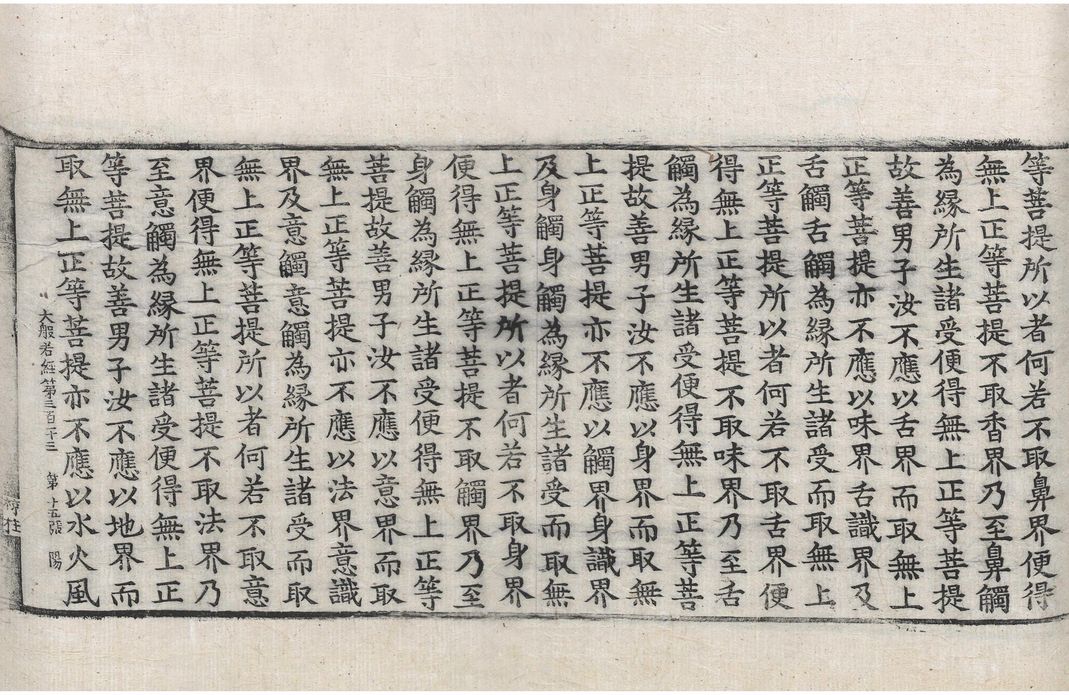 等菩提所以者何若不取鼻界便得
無上正等菩提不取香界乃至鼻觸
為緣所生諸受便得無上正等菩提
故善男子汝不應以舌界而取無上
正等菩提亦不應以味界舌識界及
舌觸舌觸為緣所生諸受而取無上
正等菩提所以者何若不取舌界便
得無上正等菩提不取味界乃至舌
觸為緣所生諸受便得無上正等菩
提故善男子汝不應以身界而取無
上正等菩提亦不應以觸界身識界
及身觸身觸為緣所生諸受而取無
上正等菩提所以者何若不取身界
便得無上正等菩提不取觸界乃至
身觸為緣所生諸受便得無上正等
菩提故善男子汝不應以意界而取
無上正等菩提亦不應以法界意識
界及意觸意觸為緣所生諸受而取
無上正等菩提所以者何若不取意
界便得無上正等菩提不取法界乃
至意觸為緣所生諸受便得無上正
等菩提故善男子汝不應以地界而
取無上正等菩提亦不應以水火風
大般若經第三百十三 第十五張 陽